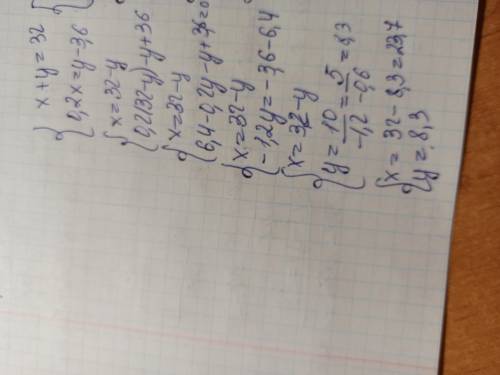 { x + y = 32
0,2x = y - 3,6
{ x = 32 - y
0,2(32 - y) - y + 3,6
{ x = 32 - y
6,4 - 0,2y - y + 3,6 = 0
{ x = 32 - y
-1,2y = -3,6 - 6,4
{ x = 32 - y
y = 10/-1,2 = 5/-0,6 = 8,3
{ x = 32 - 8,3 = 23,7
y = 8,3